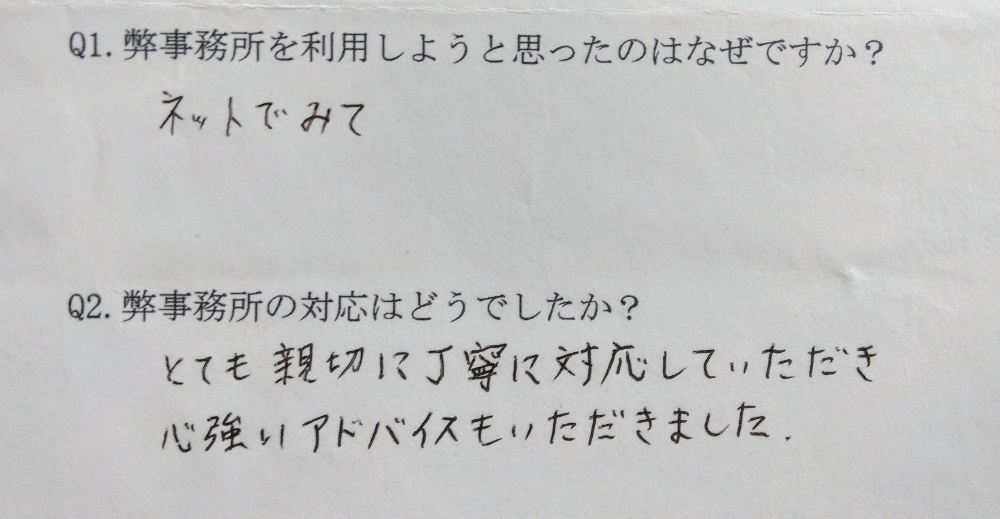 Q1.弊事務所を利用しようと思ったのはなぜですか？
ネットでみて
Q2.弊事務所の対応はどうでしたか？
とても親切に丁寧に対応していただき
心強いアドバイスもいただきました.